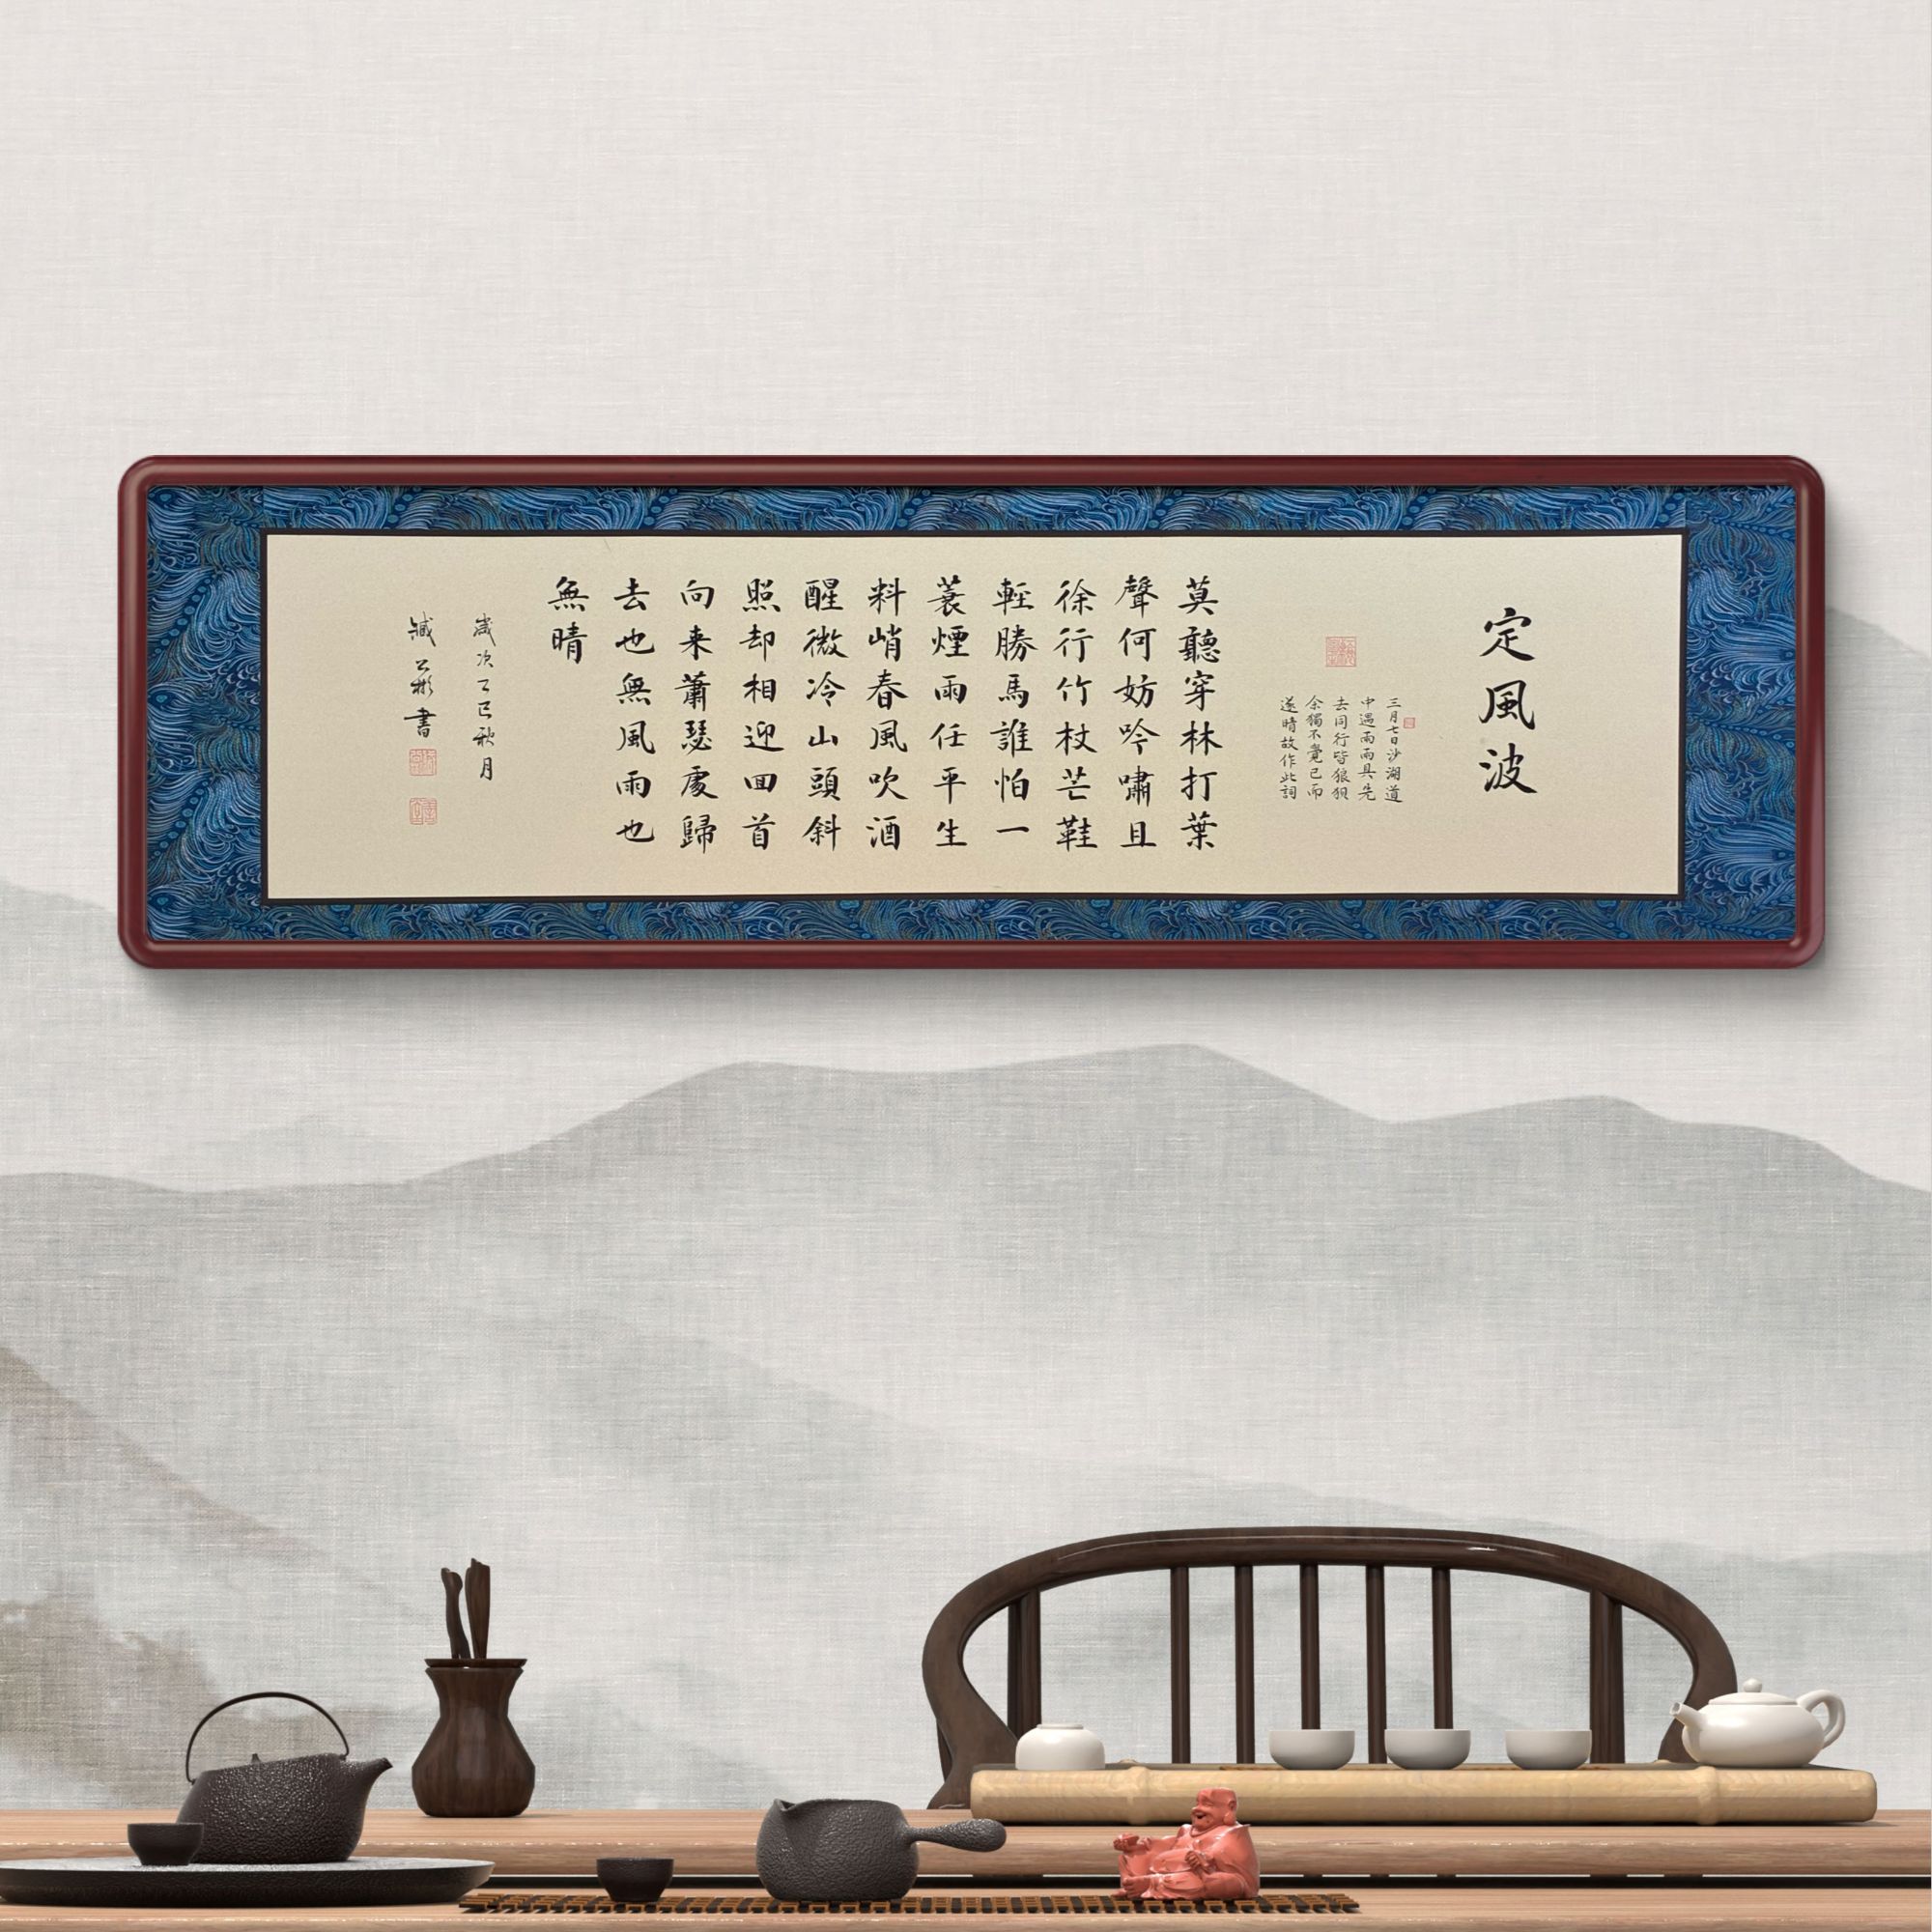 定風波
三月七日沙湖道
中遇雨雨具先
去同行皆狼狽
余獨不覺已而
遂晴故作此詞
莫聽穿林打葉
聲何妨吟嘯且
徐行竹杖芒鞋
輕勝馬誰怕一
蓑煙雨任平生
料峭春風吹酒
醒微冷山頭斜
照却相迎囬首
向来蕭瑟處歸
去也無風雨也
無晴
歲次乙巳秋月
臧公彬書